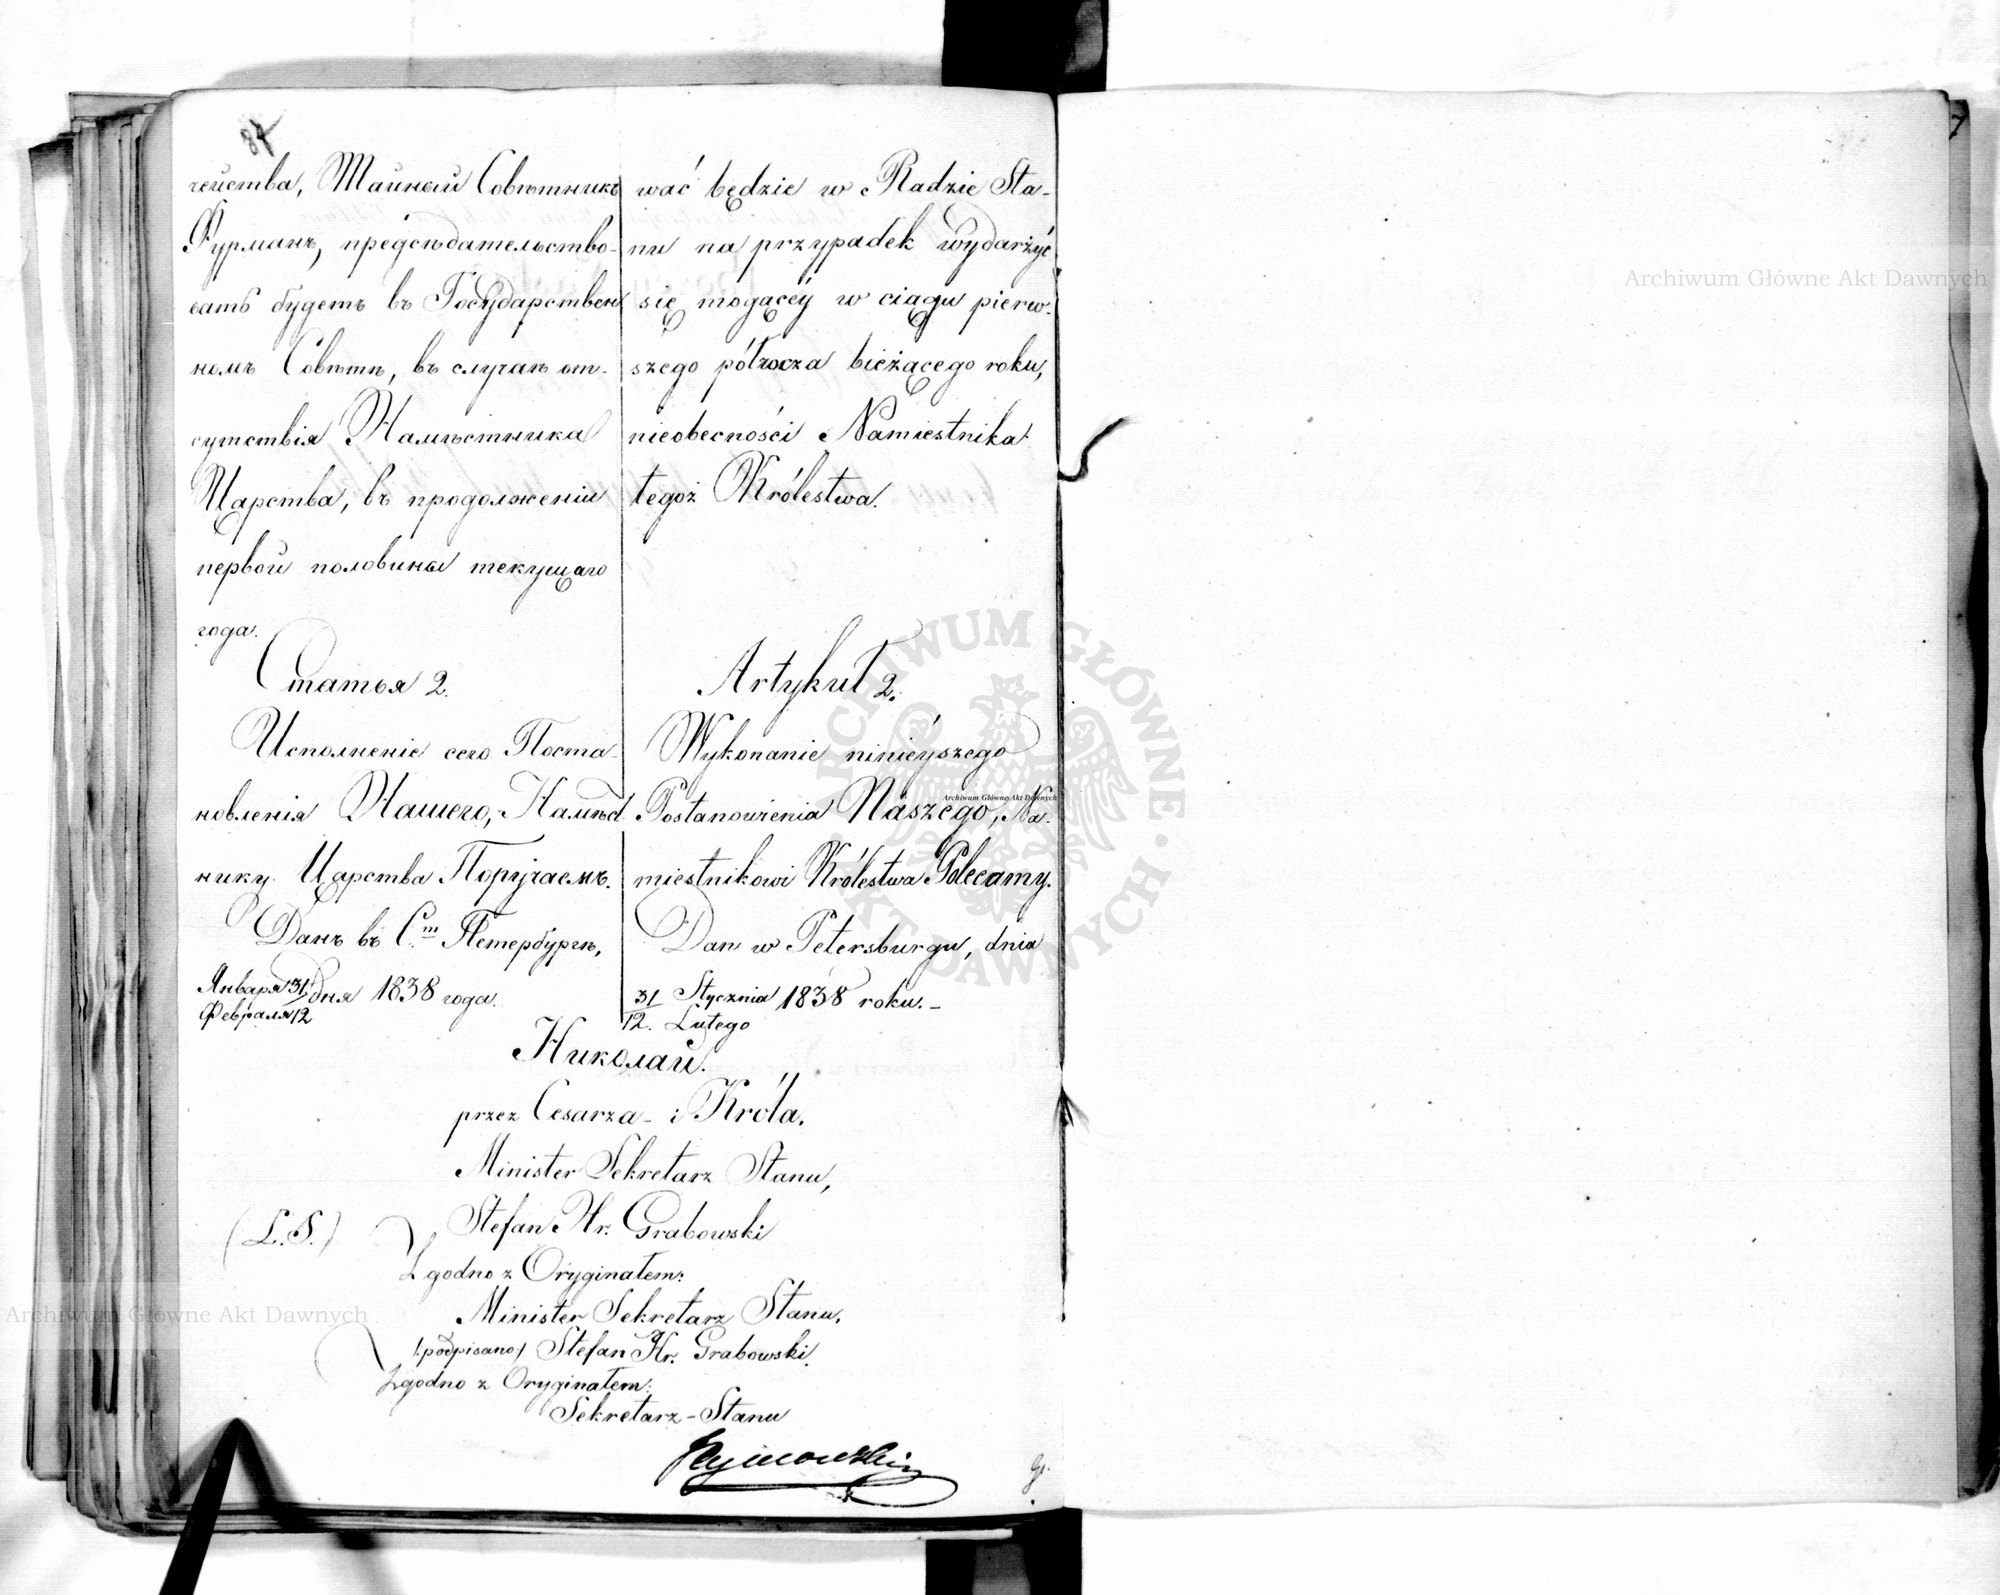 84
чейства, Тайный Совѣтникъ
Фурманъ, предсѣдательство-
вать будетъ въ Государствен
номъ Совѣтѣ, въ случаѣ от-
сутствія Намѣстника
Царства, въ продолженіи
первой половины текущаго
года.
Статья 2.
Исполненіе сего Поста-
новленія Нашего, Намѣст
нику Царства Поручаемъ.
Данъ въ С.т Петербургѣ,
Января 31/Февраля 12 дня 1838 года.
wać będzie w Radzie Sta-
nu na przypadek wydarzyć
się mogącéy w ciągu pierw-
szego półrocza bieżącego roku,
nieobecności Namiestnika
tegoż Królestwa.
Artykuł 2.
Wykonanie ninieyszego
Postanowienia Naszego, Na-
miestnikowi Królestwa Polecamy.
Dan w Petersburgu, dnia
31 Stycznia/12. Lutego 1838 roku.-
Николай.
przez Cesarza i Króla.
Minister Sekretarz Stanu,
(L.S.) Stefan Hr. Grabowski
Zgodno z Oryginałem:
Minister Sekretarz Stanu,
/:podpisano:/ Stefan Hr. Grabowski.
Zgodno z Oryginałem:
Sekretarz-Stanu
7
Archiwum Główne Akt Dawnych
ARCHIWUM GŁÓWNE AKT DAWNYCH
Archiwum Główne Akt Dawnych
Archiwum Główne Akt Dawnych